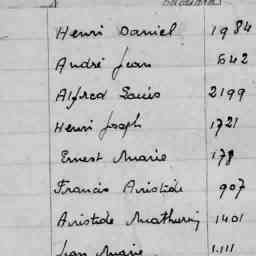 Henri Daniel 1984
André Jean 542
Alfred Louis 2199
Henri Joseph 1721
Ernest Marie 178
Francis Aristide 907
Aristide Mathurin 1401
Jean Marie